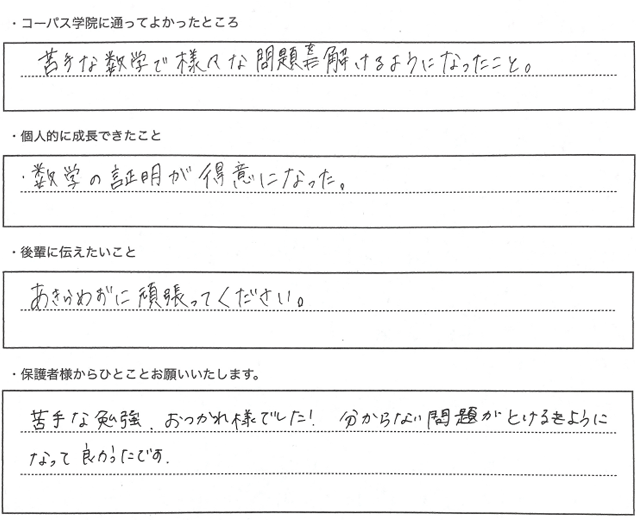 ・コーパス学院に通ってよかったところ
苦手な数学で様々な問題を解けるようになったこと。
・個人的に成長できたこと
・数学の証明が得意になった。
・後輩に伝えたいこと
あきらめずに頑張ってください。
・保護者様からひとことお願いいたします。
苦手な勉強、おつかれ様でした! 分からない問題がとけるように
なって良かったです.